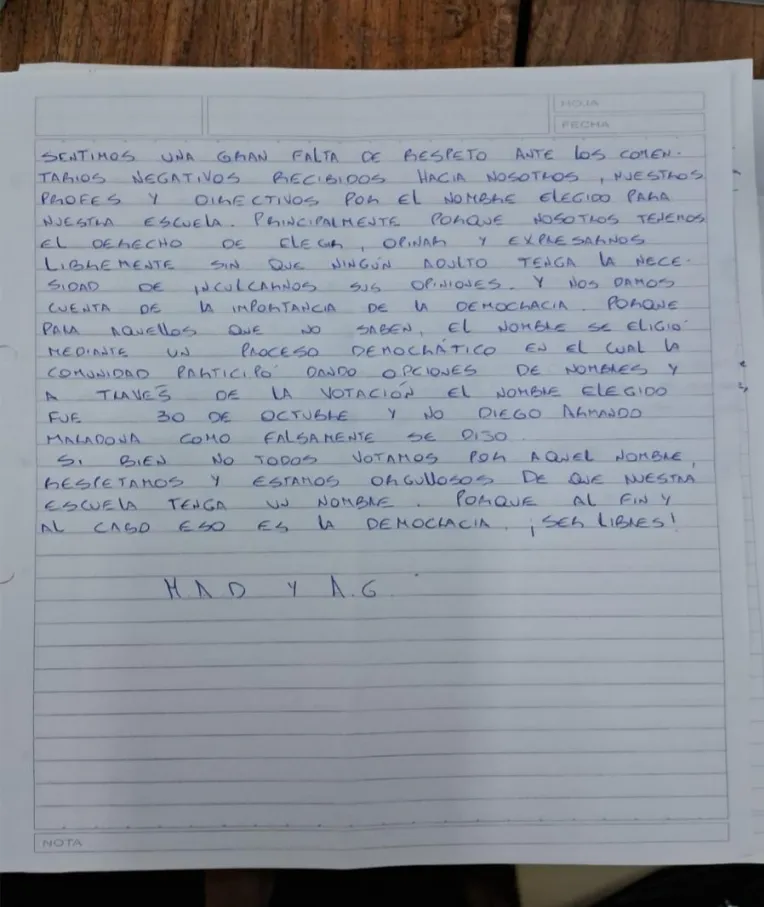 HOJA
FECHA
SENTIMOS UNA GRAN FALTA DE RESPETO ANTE LOS COMEN-
TARIOS NEGATIVOS RECIBIDOS HACIA NOSOTROS, NUESTROS
PROFES Y DIRECTIVOS POR EL NOMBRE ELEGIDO PARA
NUESTRA ESCUELA. PRINCIPALMENTE PORQUE NOSOTROS TENEMOS
EL DERECHO DE ELEGIR, OPINAR Y EXPRESARNOS
LIBREMENTE SIN QUE NINGÚN ADULTO TENGA LA NECE-
SIDAD DE INCULCARNOS SUS OPINIONES. Y NOS DAMOS
CUENTA DE LA IMPORTANCIA DE LA DEMOCRACIA. PORQUE
PARA AQUELLOS QUE NO SABEN, EL NOMBRE SE ELIGIÓ
MEDIANTE UN PROCESO DEMOCRÁTICO EN EL CUAL LA
COMUNIDAD PARTICIPÓ DANDO OPCIONES DE NOMBRES Y
A TRAVÉS DE LA VOTACIÓN EL NOMBRE ELEGIDO
FUE 30 DE OCTUBRE Y NO DIEGO ARMANDO
MARADONA COMO FALSAMENTE SE DIJO.
SI BIEN NO TODOS VOTAMOS POR AQUEL NOMBRE,
RESPETAMOS Y ESTAMOS ORGULLOSOS DE QUE NUESTRA
ESCUELA TENGA UN NOMBRE. PORQUE AL FIN Y
AL CABO ESO ES LA DEMOCRACIA. ¡SER LIBRES!
MAD Y A.G.
NOTA